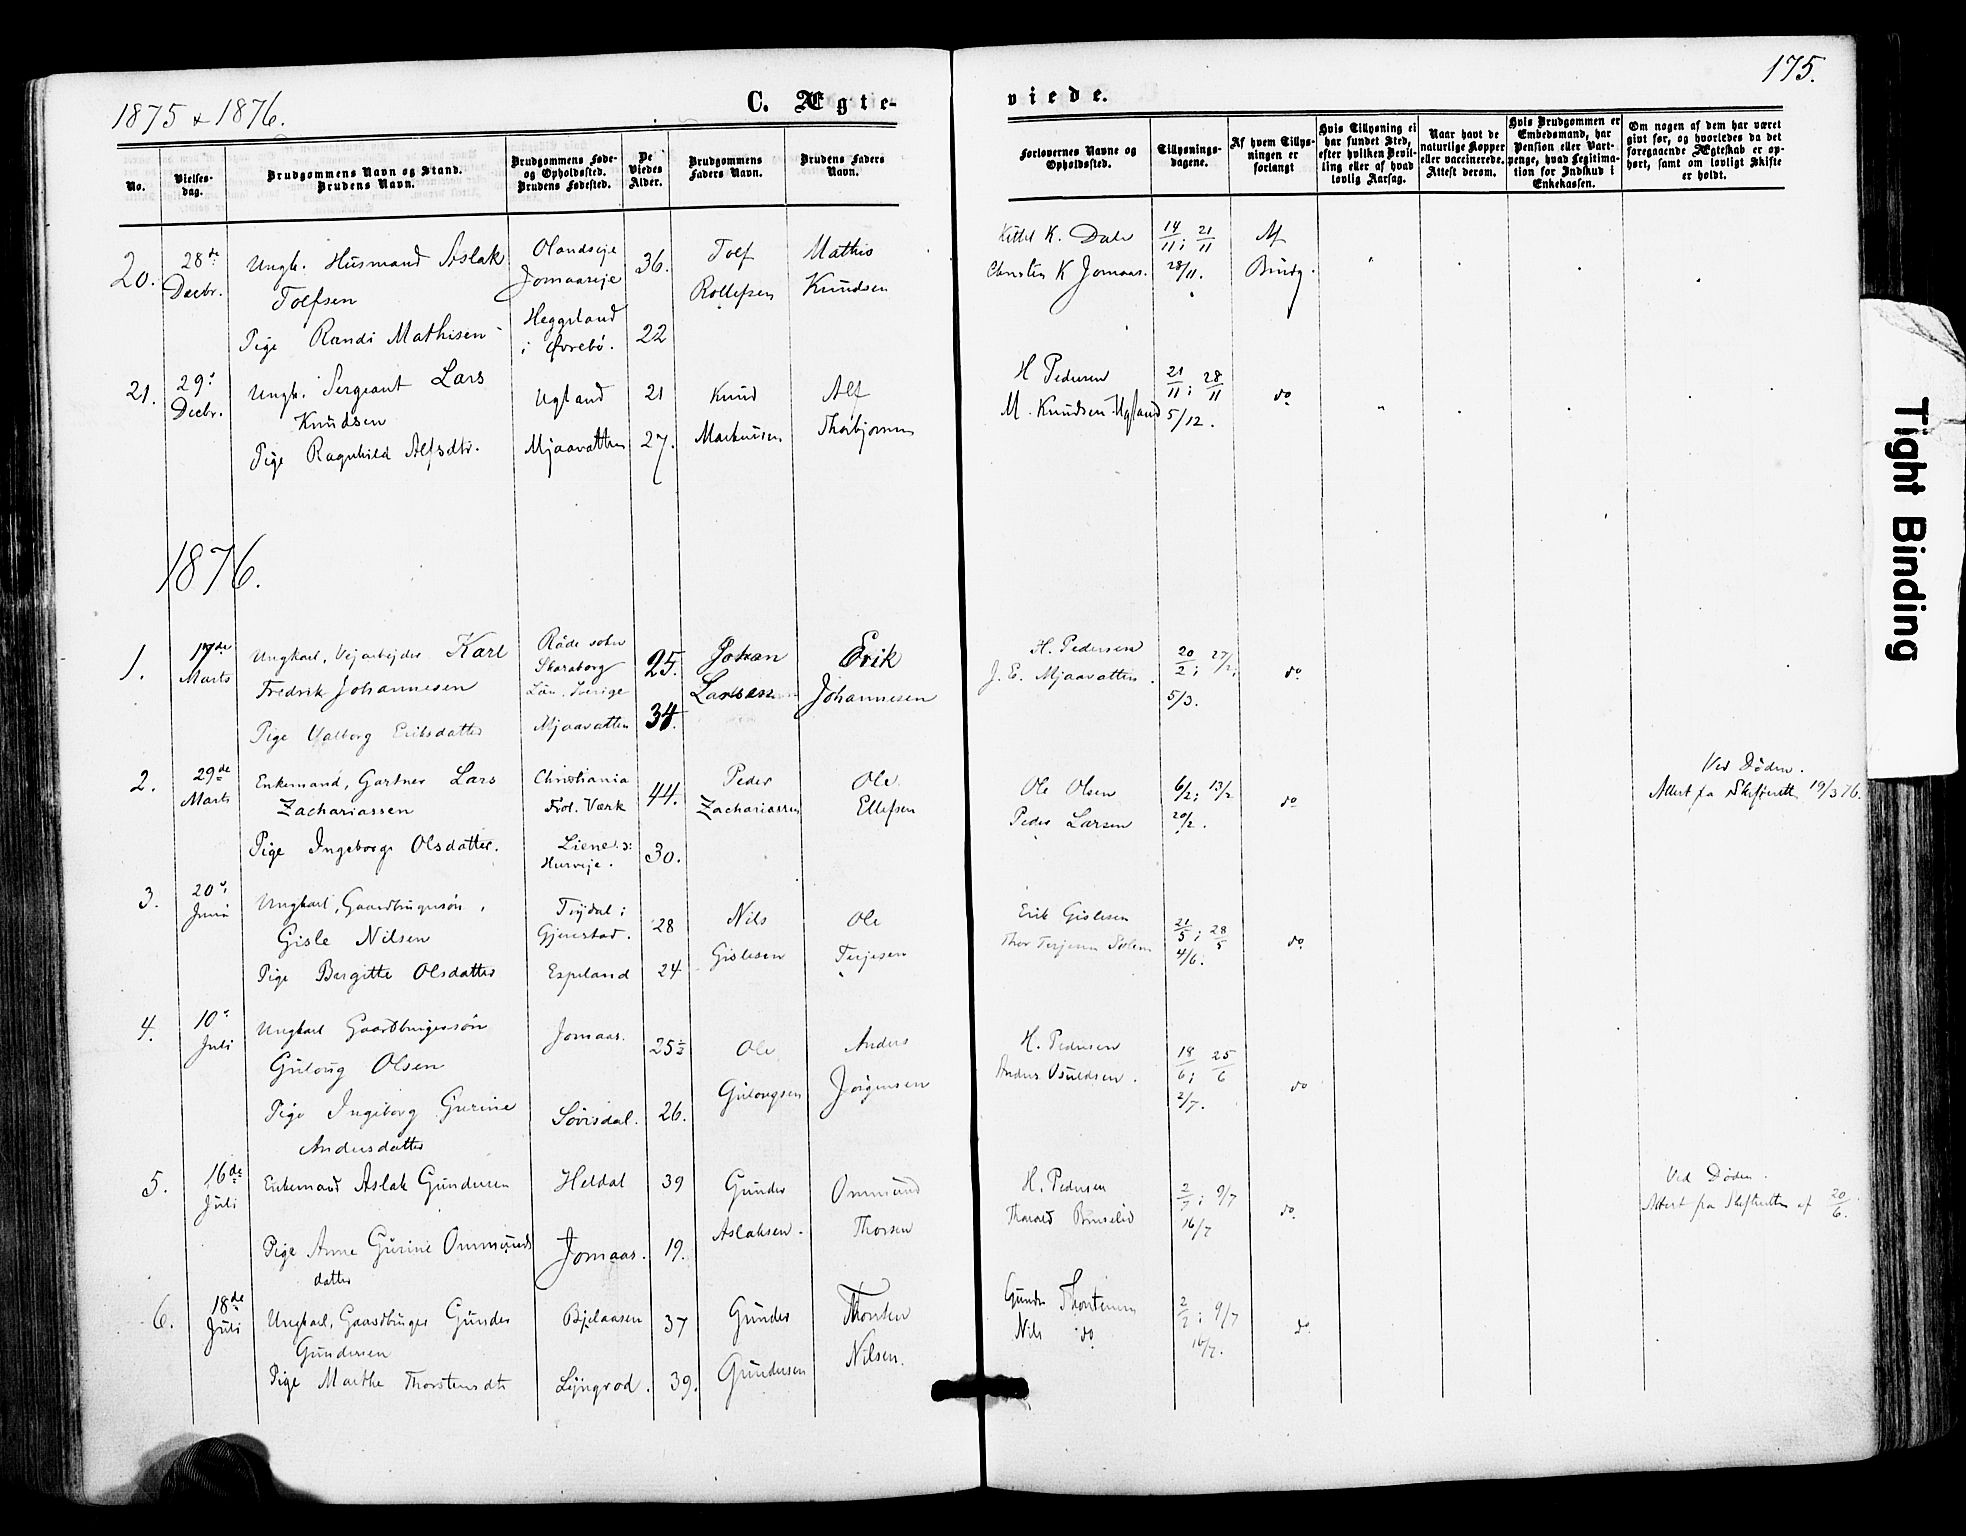 1875 & 1876.
C. Ægte-
viede.
175.
No.
Vielses-
dag.
Brudgommens Navn og Stand.
Brudens Navn.
Brudgommens Føde-
og Opholdssted.
Brudens Fødested.
De
Viedes
Alder.
Brudgommens
Faders Navn.
Brudens Faders
Navn.
Forlovernes Navne og
Opholdssted.
Tillysnings-
dagene.
Af hvem Tillys-
ningen er
forlangt
Hvis Tillysning ei
har fundet Sted,
efter hvilken Bevil-
ling eller af hvad
lovlig Aarsag.
Naar havt de
naturlige Kopper
eller vaccinerede.
Attest derom.
Hvis Brudgommen er
Embedsmand, har
Pension eller Vart-
penge, hvad Legitima-
tion for Indskud i
Enkekassen.
Om nogen af dem har været
gift før, og hvorledes da det
foregaaende Ægteskab er op-
hørt, samt om lovligt Skifte
er holdt.
20.
28de
Decbr.
Ungk. Husmand Aslak
Tolfsen
Pige Randi Mathisen
Olandseje
Jomaaseje
Heggeland
i Øvrebö.
36.
22
Tolf
Rollefsen
Mathis
Knudsen
Kittel K. Dale
Christen K Jomaas.
14/11; 21/11
28/11.
Af
Brudg.
21.
29de
Decbr.
Ungk. Sergeant Lars
Knudsen
Pige Ragnhild Alfsdtr.
Ugland
Mjaavatten
21
27.
Knud
Markussen
Alf
Thorbjørnsen
H Pedersen
M. Knudsen Ugland
21/11; 28/11
5/12.
do
1876.
1.
17de
Marts
Ungkarl, Vejarbejder Karl
Fredrik Johannesen
Pige Valborg Eriksdatter
Råde sokn
Skaraborg
Län. Sverige
Mjaavatten
25.
34.
Johan
Larsen
Erik
Johannesen
H. Pedersen
J. E. Mjaavatten.
20/2; 27/2;
5/3.
do
2.
29de
Marts
Enkemand, Gartner Lars
Zachariassen
Pige Ingeborg Olsdatter.
Christiania
Frol. Værk
Liene s:
Husveje.
44.
30.
Peder
Zachariassen
Ole
Ellefsen
Ole Olsen
Peder Larsen
6/2; 13/2
20/2.
do
Ved Døden.
Attest fra Skifteretten 19/3 76.
3.
20de
Juni
Ungkarl, Gaardbrugersön,
Gisle Nilsen
Pige Birgitte Olsdatter
Trydal i
Gjerestad.
Espeland
28
24
Nils
Gislesen
Ole
Terjesen
Erik Gislesen
Thor Terjesen Solem
21/5; 28/5
4/6.
do
4.
10de
Juli
Ungkarl Gaardbrugersön
Guloug Olsen
Pige Ingeborg Gurine
Andersdatter
Jomaas.
Sövisdal.
25½
26.
Ole
Gulougsen
Anders
Jørgensen
H. Pedersen
Anders Osuldsen.
18/6; 25/6
2/7.
do
5.
16de
Juli
Enkemand Aslak Gundersen
Pige Anne Gurine Ommunds
datter
Heldal
Jomaas.
39
19.
Gunder
Aslaksen.
Ommund
Thorsen
H. Pedersen
Tharald Bruselid
2/7; 9/7
16/7
do
Ved Døden.
Attest fra Skifteretten af 20/6.
6.
18de
Juli
Ungkarl, Gaardbruger Gunder
Gundersen
Pige Marthe Thorstensdtr
Bjelaasen
Lyngrod.
37
39.
Gunder
Gundersen
Thorsten
Nilsen.
Gunder Thorstensen
Nils do
2/7; 9/7
16/7.
do
Tight Binding